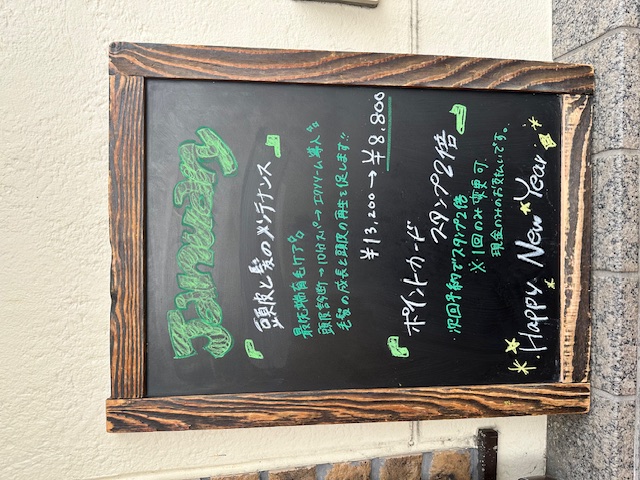 January
頭皮と髪のメンテナンス
最先端育毛ケア
頭皮診断→10分スパ→エクソソーム導入
毛髪の成長と頭皮の再生を促します!!
¥13,200→¥8,800
ポイントカード
スタンプ2倍
次回予約でスタンプ2倍
※1回のみ変更可
現金のみのお支払いです。
Happy New Year